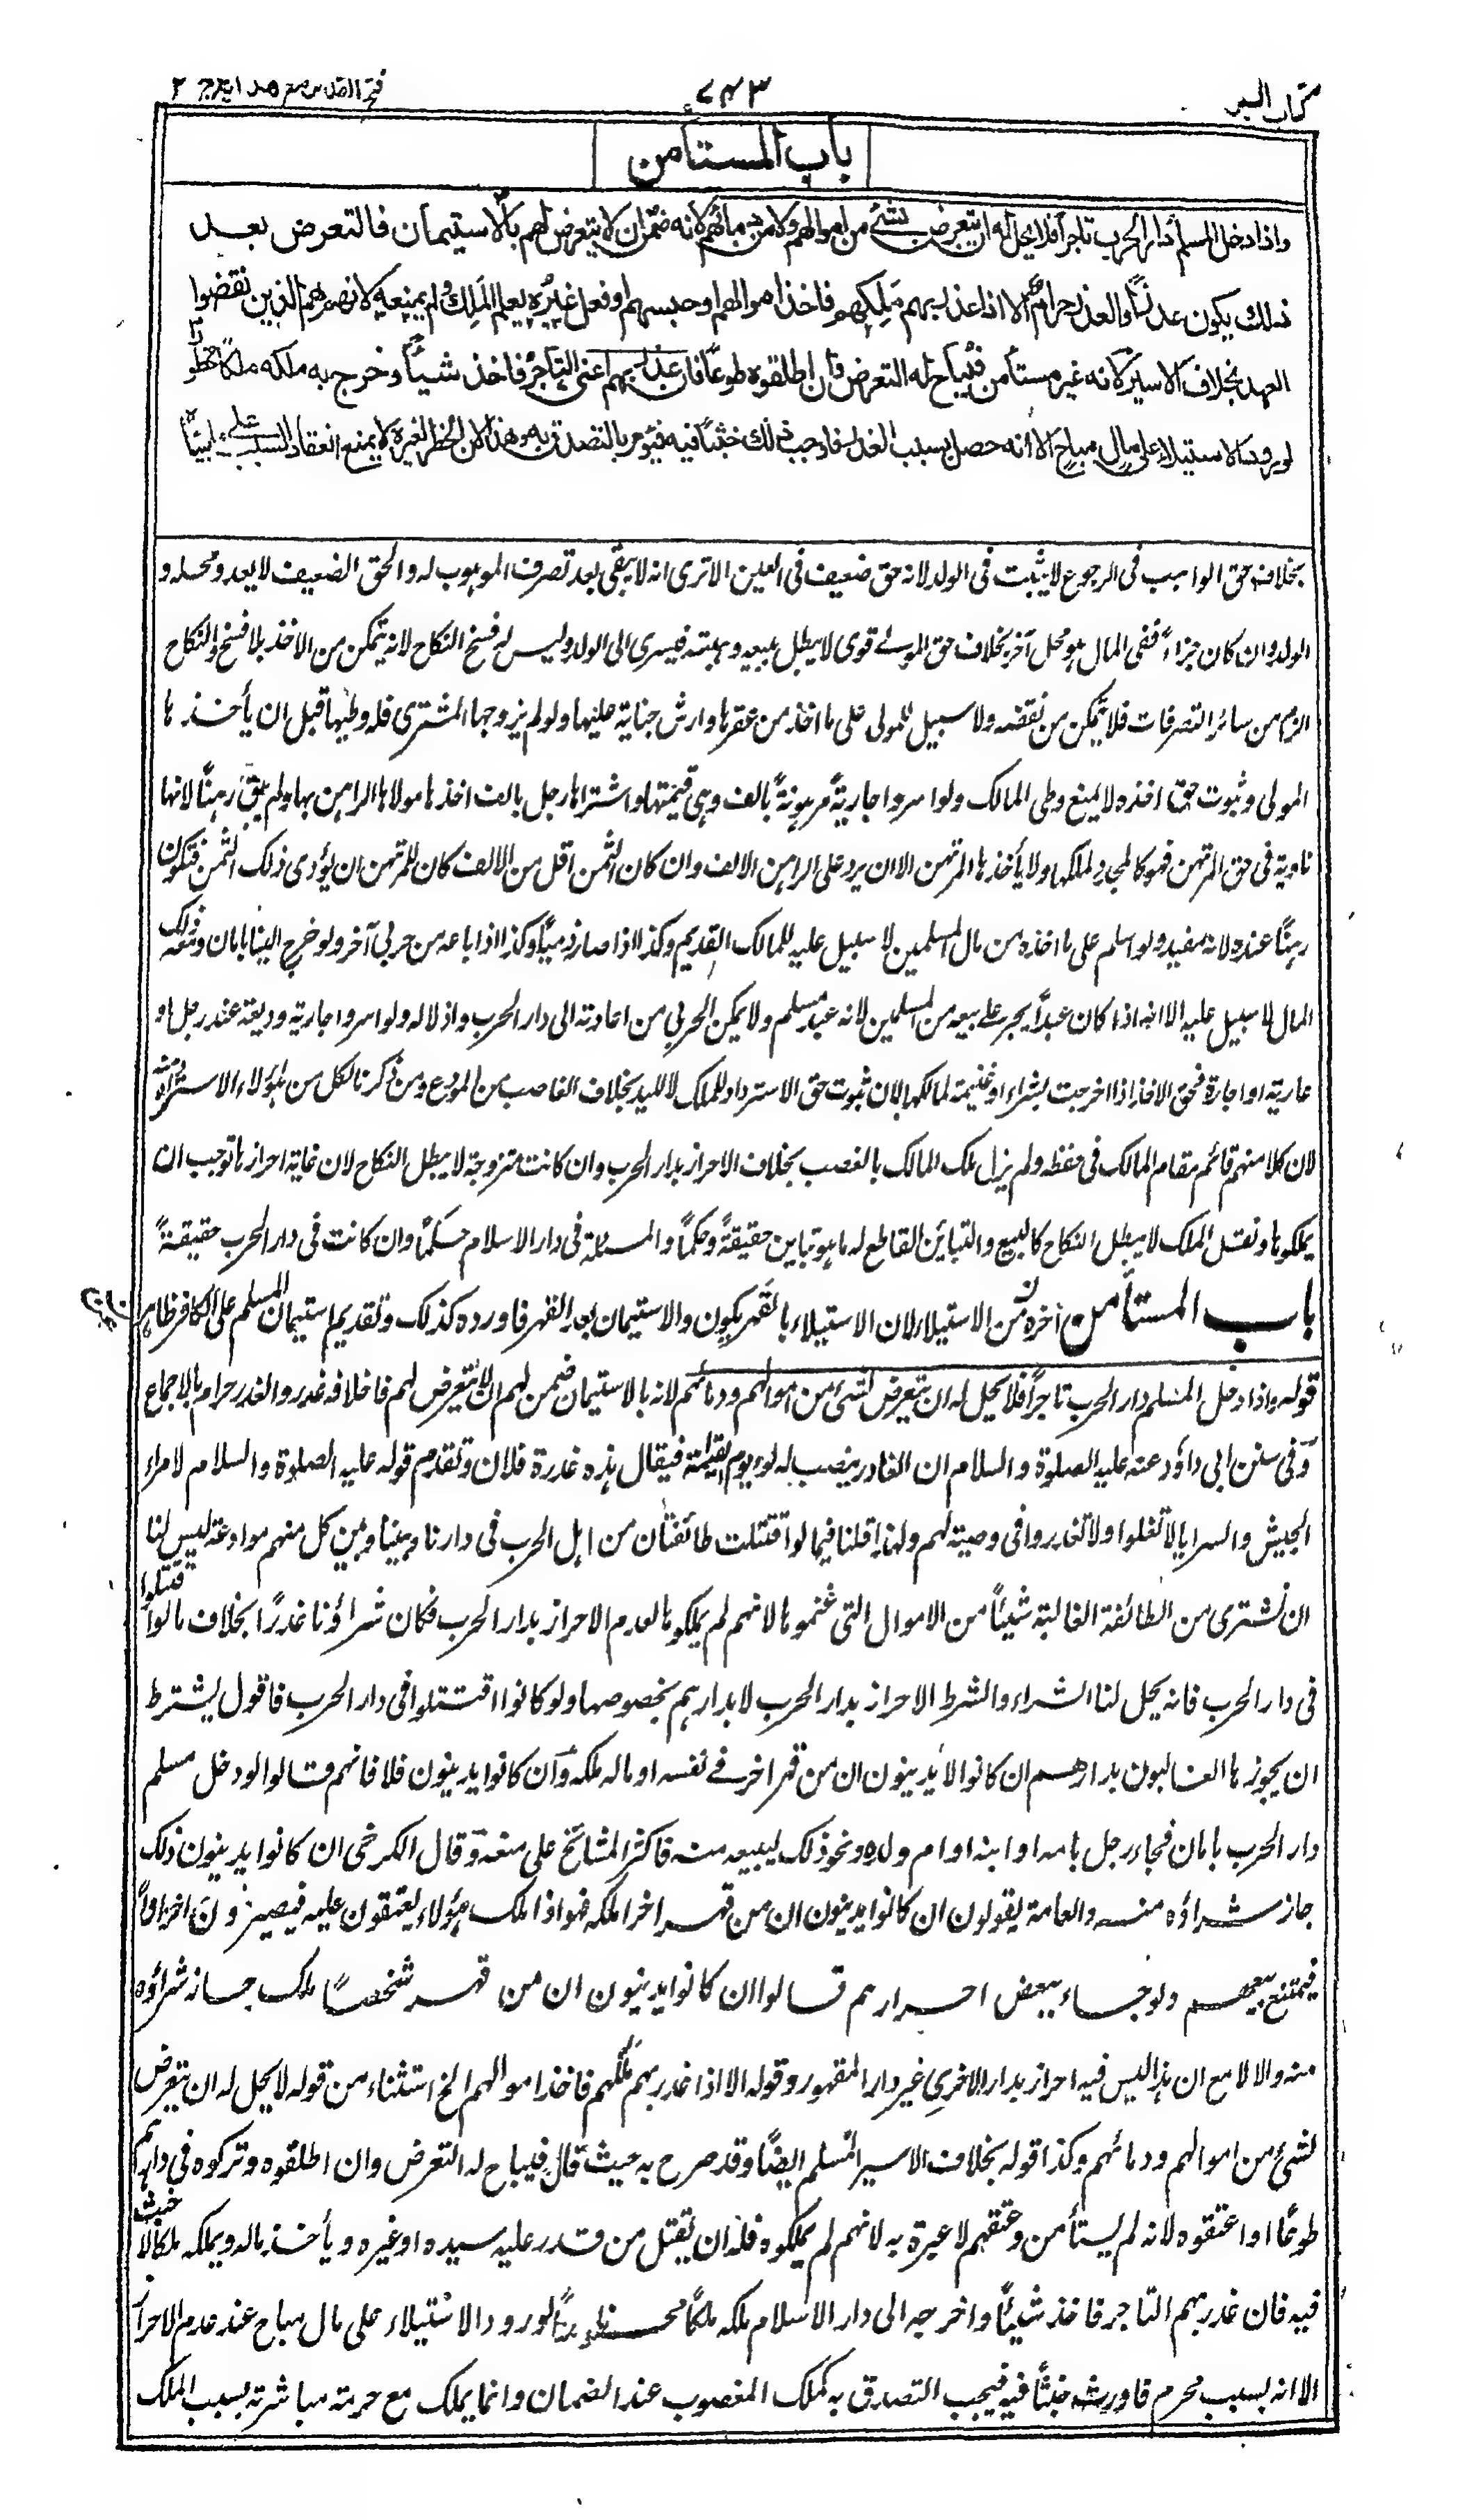 كتاب السير
٧٤٣
فتح القدير مع هدايه ج ٢
باب المستأمن
واذا دخل المسلم دار الحرب تاجرا فلا يحل له ان يتعرض بشئ من اموالهم ولا من دمائهم لانه ضمن ان لا يتعرض لهم بالاستيمان فالتعرض بعد
ذلك يكون غدرا والغدر حرام الا اذا غدر بهم ملكهم فاخذ اموالهم او حبسهم او فعل غيره بعلم الملك ولم يمنعه لانهم هم الذين نقضوا
العهد بخلاف الاسير لانه غير مستأمن فيباح له التعرض وان اطلقوه طوعا فان غدر بهم اعنى التاجر فاخذ شيئا وخرج به ملكه ملكا محظورا
لورود الاستيلاء على مال مباح الا انه حصل بسبب الغدر فاوجب ذلك خبثا فيه فيؤمر بالتصدق به وهذا لان الحظر لغيره لا يمنع انعقاد السبب على ما بينا
بخلاف حق الواهب فى الرجوع لا يثبت فى الولد لانه حق ضعيف فى العين الا ترى انه لا يبقى بعد تصرف الموهوب له والحق الضعيف لا يعدو محله و
الولد وان كان جزاءً ففى المال هو محل آخر بخلاف حق المولى قوى لا يبطل ببيعه وهبته فيسرى الى الولد وليس له فسخ النكاح لانه يتمكن من الاخذ بلا فسخ والنكاح
الزم من سائر التصرفات فلا يتمكن من نقضه ولا سبيل للمولى على ما اخذ من عقرها وارش جناية عليها ولو لم يزوجها المشترى فله وطيها قبل ان يأخذها
المولى وثبوت حق اخذه لا يمنع وطى المالك ولو اسروا جارية مرهونة بالف وهى قيمتها واشتراها رجل بالف اخذها مولاها الراهن بها ولم يبق رهنًا لانها
تاوية فى حق المرتهن فهو كالمجدد لملكها ولا يأخذها المرتهن الا ان يرد على الراهن الالف وان كان الثمن اقل من الالف كان للمرتهن ان يؤدى ذلك الثمن فتكون
رهنًا عنده لانه مفيد ولو اسلم على ما اخذه من مال المسلمين لا سبيل عليه للمالك القديم وكذا اذا صار ذميًا وكذا اذا باعه من حربى آخر ولو خرج الينا بامان ومعه ذلك
المال لا سبيل عليه الا انه اذا كان عبدًا يجبر على بيعه من المسلمين لانه عبد مسلم ولا يمكن الحربى من اعادته الى دار الحرب واذلاله ولو اسروا جارية وديعة عند رجل او
عارية او اجارة فحق الاخذ اذا اخرجت بشراء او غنيمة لمالكها لان ثبوت حق الاسترداد للملك لا لليد بخلاف الغاصب من المودع ومن ذكرنا لكل من هؤلاء الاسترداد منه
لان كلا منهم قائم مقام المالك فى حفظه ولم يزل ملك المالك بالغصب بخلاف الاحراز بدار الحرب وان كانت متزوجة لا يبطل النكاح لان غاية احرازها توجب ان
يملكوها ونقل الملك لا يبطل النكاح كالبيع والتباين القاطع له ما هو تباين حقيقة وحكمًا والمسلمة فى دار الاسلام حكمًا وان كانت فى دار الحرب حقيقةً
باب المستأمن اخره عن الاستيلاء لان الاستيلاء بالقهر يكون والاستيمان بعد القهر فاورده كذلك وتقديم استيمان المسلم على الكافر ظاهر
قوله واذا دخل المسلم دار الحرب تاجرا فلا يحل له ان يتعرض لشئ من اموالهم ودمائهم لانه بالاستيمان ضمن لهم ان لا يتعرض لهم فاخلافه غدر والغدر حرام بالاجماع
وفى سنن ابى داؤد عنه عليه الصلوة والسلام ان الغادر ينصب له لواء يوم القيمة فيقال هذه غدرة فلان وتقدم قوله عليه الصلوة والسلام لامراء
الجيش والسرايا لا تغلوا ولا تغدروا فى وصيته لهم ولهذا قلنا فيما لو اقتتلت طائفتان من اهل الحرب فى دارنا وبيننا وبين كل منهم موادعة ليس لنا
ان نشترى من الطائفة الغالبة شيئًا من الاموال التى غنموها لانهم لم يملكوها لعدم الاحراز بدار الحرب فكان شراؤنا غدرًا بخلاف ما لو اقتتلوا
فى دار الحرب فانه يحل لنا الشراء والشرط الاحراز بدار الحرب لا بدارهم بخصوصها ولو كانوا اقتتلوا فى دار الحرب فاقول يشترط
ان يحوزها الغالبون بدارهم ان كانوا لا يدينون ان من قهر اخر فى نفسه او ماله ملكه وان كانوا يدينون فلا فانهم قالوا لو دخل مسلم
دار الحرب بامان فجاء رجل بامه او ابنه او ام ولده ونحو ذلك ليبيعه منه فاكثر المشائخ على منعه وقال الكرخى ان كانوا يدينون ذلك
جاز شراؤه منه والعامة يقولون ان كانوا يدينون ان من قهر اخر املكه فهو اذا ملك هؤلاء يعتقون عليه فيصيرون احرارًا
فيمتنع بيعهم ولو جاء ببعض احرارهم قالوا ان كانوا يدينون ان من قهر شخصًا ملك جاز شراؤه
منه والا لا مع ان هذا ليس فيه احراز بدار الاخرى غير دار المقهور وقوله الا اذا غدر بهم ملكهم فاخذ اموالهم الخ استثناء من قوله لا يحل له ان يتعرض
لشئ من اموالهم ودمائهم وكذا قوله بخلاف الاسير المسلم ايضًا وقد صرح به حيث قال فيباح له التعرض وان اطلقوه وتركوه فى دارهم
طوعًا او اعتقوه لانه لم يستأمن وعتقهم لا عبرة به لانهم لم يملكوه فله ان يقتل من قدر عليه سيده او غيره ويأخذ ماله ويملكه ملكا لا خبث
فيه فان غدر بهم التاجر فاخذ شيئًا واخرجه الى دار الاسلام ملكه ملكًا محظورًا لورود الاستيلاء على مال مباح عند عدم الاحراز
الا انه بسبب محرم فاورثه خبثًا فيه فيجب التصدق به كملك المغصوب عند الضمان وانما يملك مع حرمته مباشرته بسبب الملك